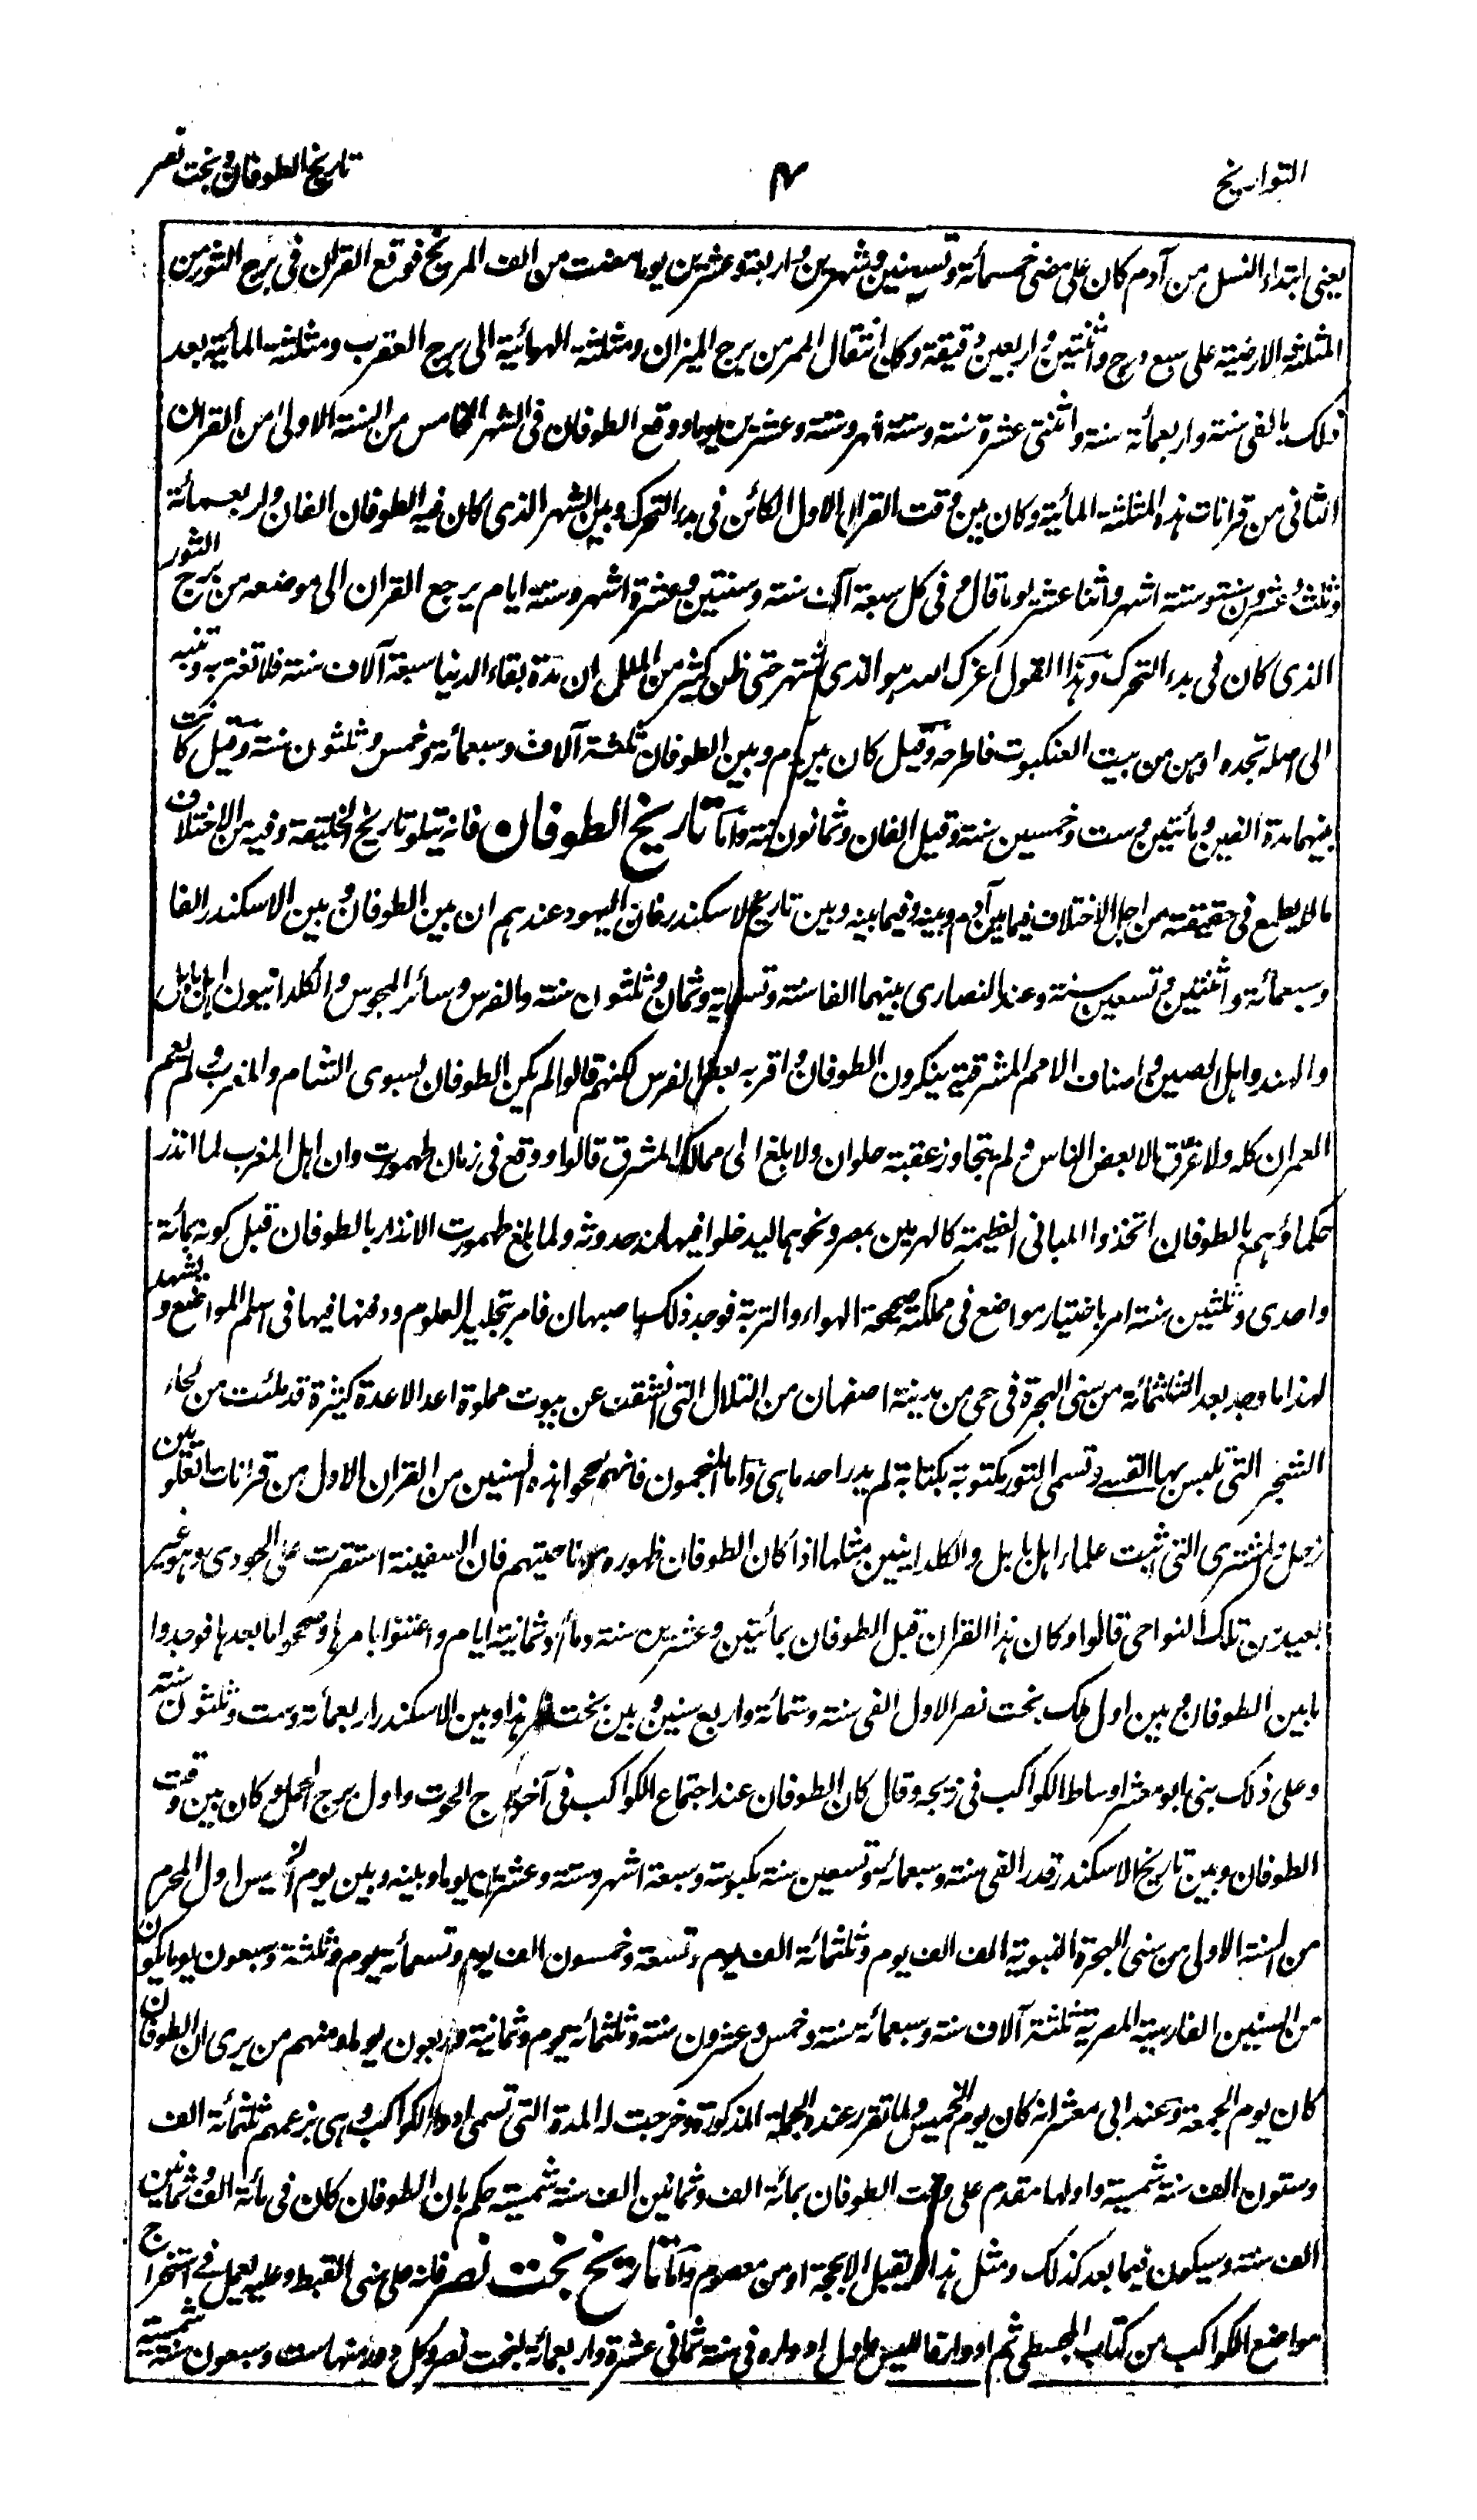 التواريخ
٧
تاريخ الطوفان و بخت نصر
يعنى ابتداء النسل من آدم كان على مضى خمسمأئة وتسع سنين وشهرين واربعة وعشرين يوما مضت من الف المريخ فوقع القران فى برج الثور من
المثلثة الارضية على سبع درج واثنتين واربعين دقيقة وكان انتقال الممر من برج الميزان ومثلثة الهوائية الى برج العقرب ومثلثة المائية بعد
ذلك بالفى سنة واربعمأئة سنة واثنتى عشرة سنة وستة اشهر وستة وعشرين يوما ووقع الطوفان فى الشهر الخامس من السنة الاولى من القران
الثانى من قرانات هذه المثلثة المائية وكان بين وقت القران الاول الكائن فى بدء التحرك وبين الشهر الذى كان فيه الطوفان الفان واربعمائة
وثلث وعشرون سنة وستة اشهر واثنا عشر يوما قال وفى كل سبعة آلاف سنة وسنتين وعشرة اشهر وستة ايام يرجع القران الى موضعه من برج الثور
الذى كان فى بدء التحرك وهذا القول اعزك الله هو الذى اشتهر حتى ظن كثير من الملل ان مدة بقاء الدنيا سبعة آلاف سنة فلا تغتر به وتنبه
الى اصله تجده اوهن من بيت العنكبوت فاطرحه وقيل كان بين آدم وبين الطوفان ثلثة آلاف وسبعمائة وخمس وثلثون سنة وقيل كانت
بينهما مدة الفين ومأتين وست وخمسين سنة وقيل الفان وثمانون سنة واما تاريخ الطوفان فانه يتلو تاريخ الخليقة وفيه من الاختلاف
مالا يطمع فى حقيقته من اجل الاختلاف فيما بين آدم وبينه وفيما بينه وبين تاريخ الاسكندر فان اليهود عندهم ان بين الطوفان وبين الاسكندر الفا
وسبعمائة واثنتين وتسعين سنة وعند النصارى بينهما الفا سنة وتسعمائة وثمان وثلثون سنة والفرس وسائر المجوس والكلدانيون اهل بابل
والهند واهل الصين واصناف الامم المشرقية ينكرون الطوفان واقر به بعض الفرس لكنهم قالوا لم يكن الطوفان بسوى الشام والمغرب ولم يعم
العمران كله ولا غرق الا بعض الناس ولم يتجاوز عقبة حلوان ولا بلغ الى ممالك المشرق قالوا ووقع فى زمان طهمورت وان اهل المغرب لما انذر
حكماؤهم بالطوفان اتخذوا المبانى العظيمة كالهرمين بمصر ونحوهما ليدخلوا فيها عند حدوثه ولما بلغ طهمورت الانذار بالطوفان قبل كونه بمأئة
واحدى وثلثين سنة امر باختيار مواضع فى مملكته صحيحة الهواء والتربة فوجد ذلك باصبهان فامر بتجليد العلوم ودفنها فيها فى اسلم المواضع ويشهد
لهذا ما وجد بعد الثلثمائة من سنى الهجرة فى حى من مدينة اصفهان من التلال التى انشقت عن بيوت مملوة اعدالا عدة كثيرة قد ملئت من لحاء
الشجر التى تلبس بها القسى وتسمى التوز مكتوبة بكتابة لم يدر احد ما هى واما المنجمون فانهم صححوا هذه السنين من القران الاول من قرانات العلويين
زحل والمشترى التى اثبت علماء اهل بابل والكلدانيين مثلها اذ كان الطوفان ظهوره من ناحيتهم فان السفينة استقرت على الجودى وهو غير
بعيد من تلك النواحى قالوا وكان هذا القران قبل الطوفان بمأتين وعشرين سنة ومأة وثمانية ايام واعتنوا بامرها وصححوا ما بعدها فوجدوا
ما بين الطوفان وبين اول ملك بخت نصر الاول الفى سنة وستمائة واربع سنين وبين بخت نصر هذا وبين الاسكندر اربعمائة وست وثلثون سنة
وعلى ذلك بنى ابو معشر اوساط الكواكب فى زيجه وقال كان الطوفان عند اجتماع الكواكب فى آخر برج الحوت واول برج الحمل وكان بين وقت
الطوفان وبين تاريخ الاسكندر قدر الفى سنة وسبعمائة وتسعين سنة مكبوسة وسبعة اشهر وستة وعشرين يوما وبينه وبين يوم الخميس اول المحرم
من السنة الاولى من سنى الهجرة النبوية الف الف يوم وثلثمائة الف يوم وتسعة وخمسون الف يوم وتسعمائة يوم وثلثة وسبعون يوما يكون
من السنين الفارسية المصرية ثلثة آلاف سنة وسبعمائة سنة وخمس وعشرون سنة وثلثمائة يوم وثمانية واربعون يوما ومنهم من يرى ان الطوفان
كان يوم الجمعة وعند ابى معشر انه كان يوم الخميس ولما تقرر عنده الجملة المذكورة وخرجت له المدة التى تسمى ادوار الكواكب وهى بزعمهم ثلثمائة الف
وستون الف سنة شمسية واولها متقدم على وقت الطوفان بمائة الف وثمانين الف سنة شمسية حكم بان الطوفان كان فى مائة الف وثمانين
الف سنة وسيكون فيما بعد كذلك ومثل هذا لا يقبل الا بحجة او من معصوم واما تاريخ بخت نصر فانه على سنى القبط وعليه يعمل فى استخراج
مواضع الكواكب من كتاب المجسطى ثم ادوار قاللبس واول ادواره فى سنة ثمانى عشرة واربعمائة لبخت نصر وكل دور منها ست وسبعون سنة شمسية